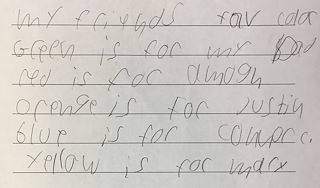 my friends fav color
Green is for my Dad
red is for
orenge is for Justin
blue is for
yellow is for mary